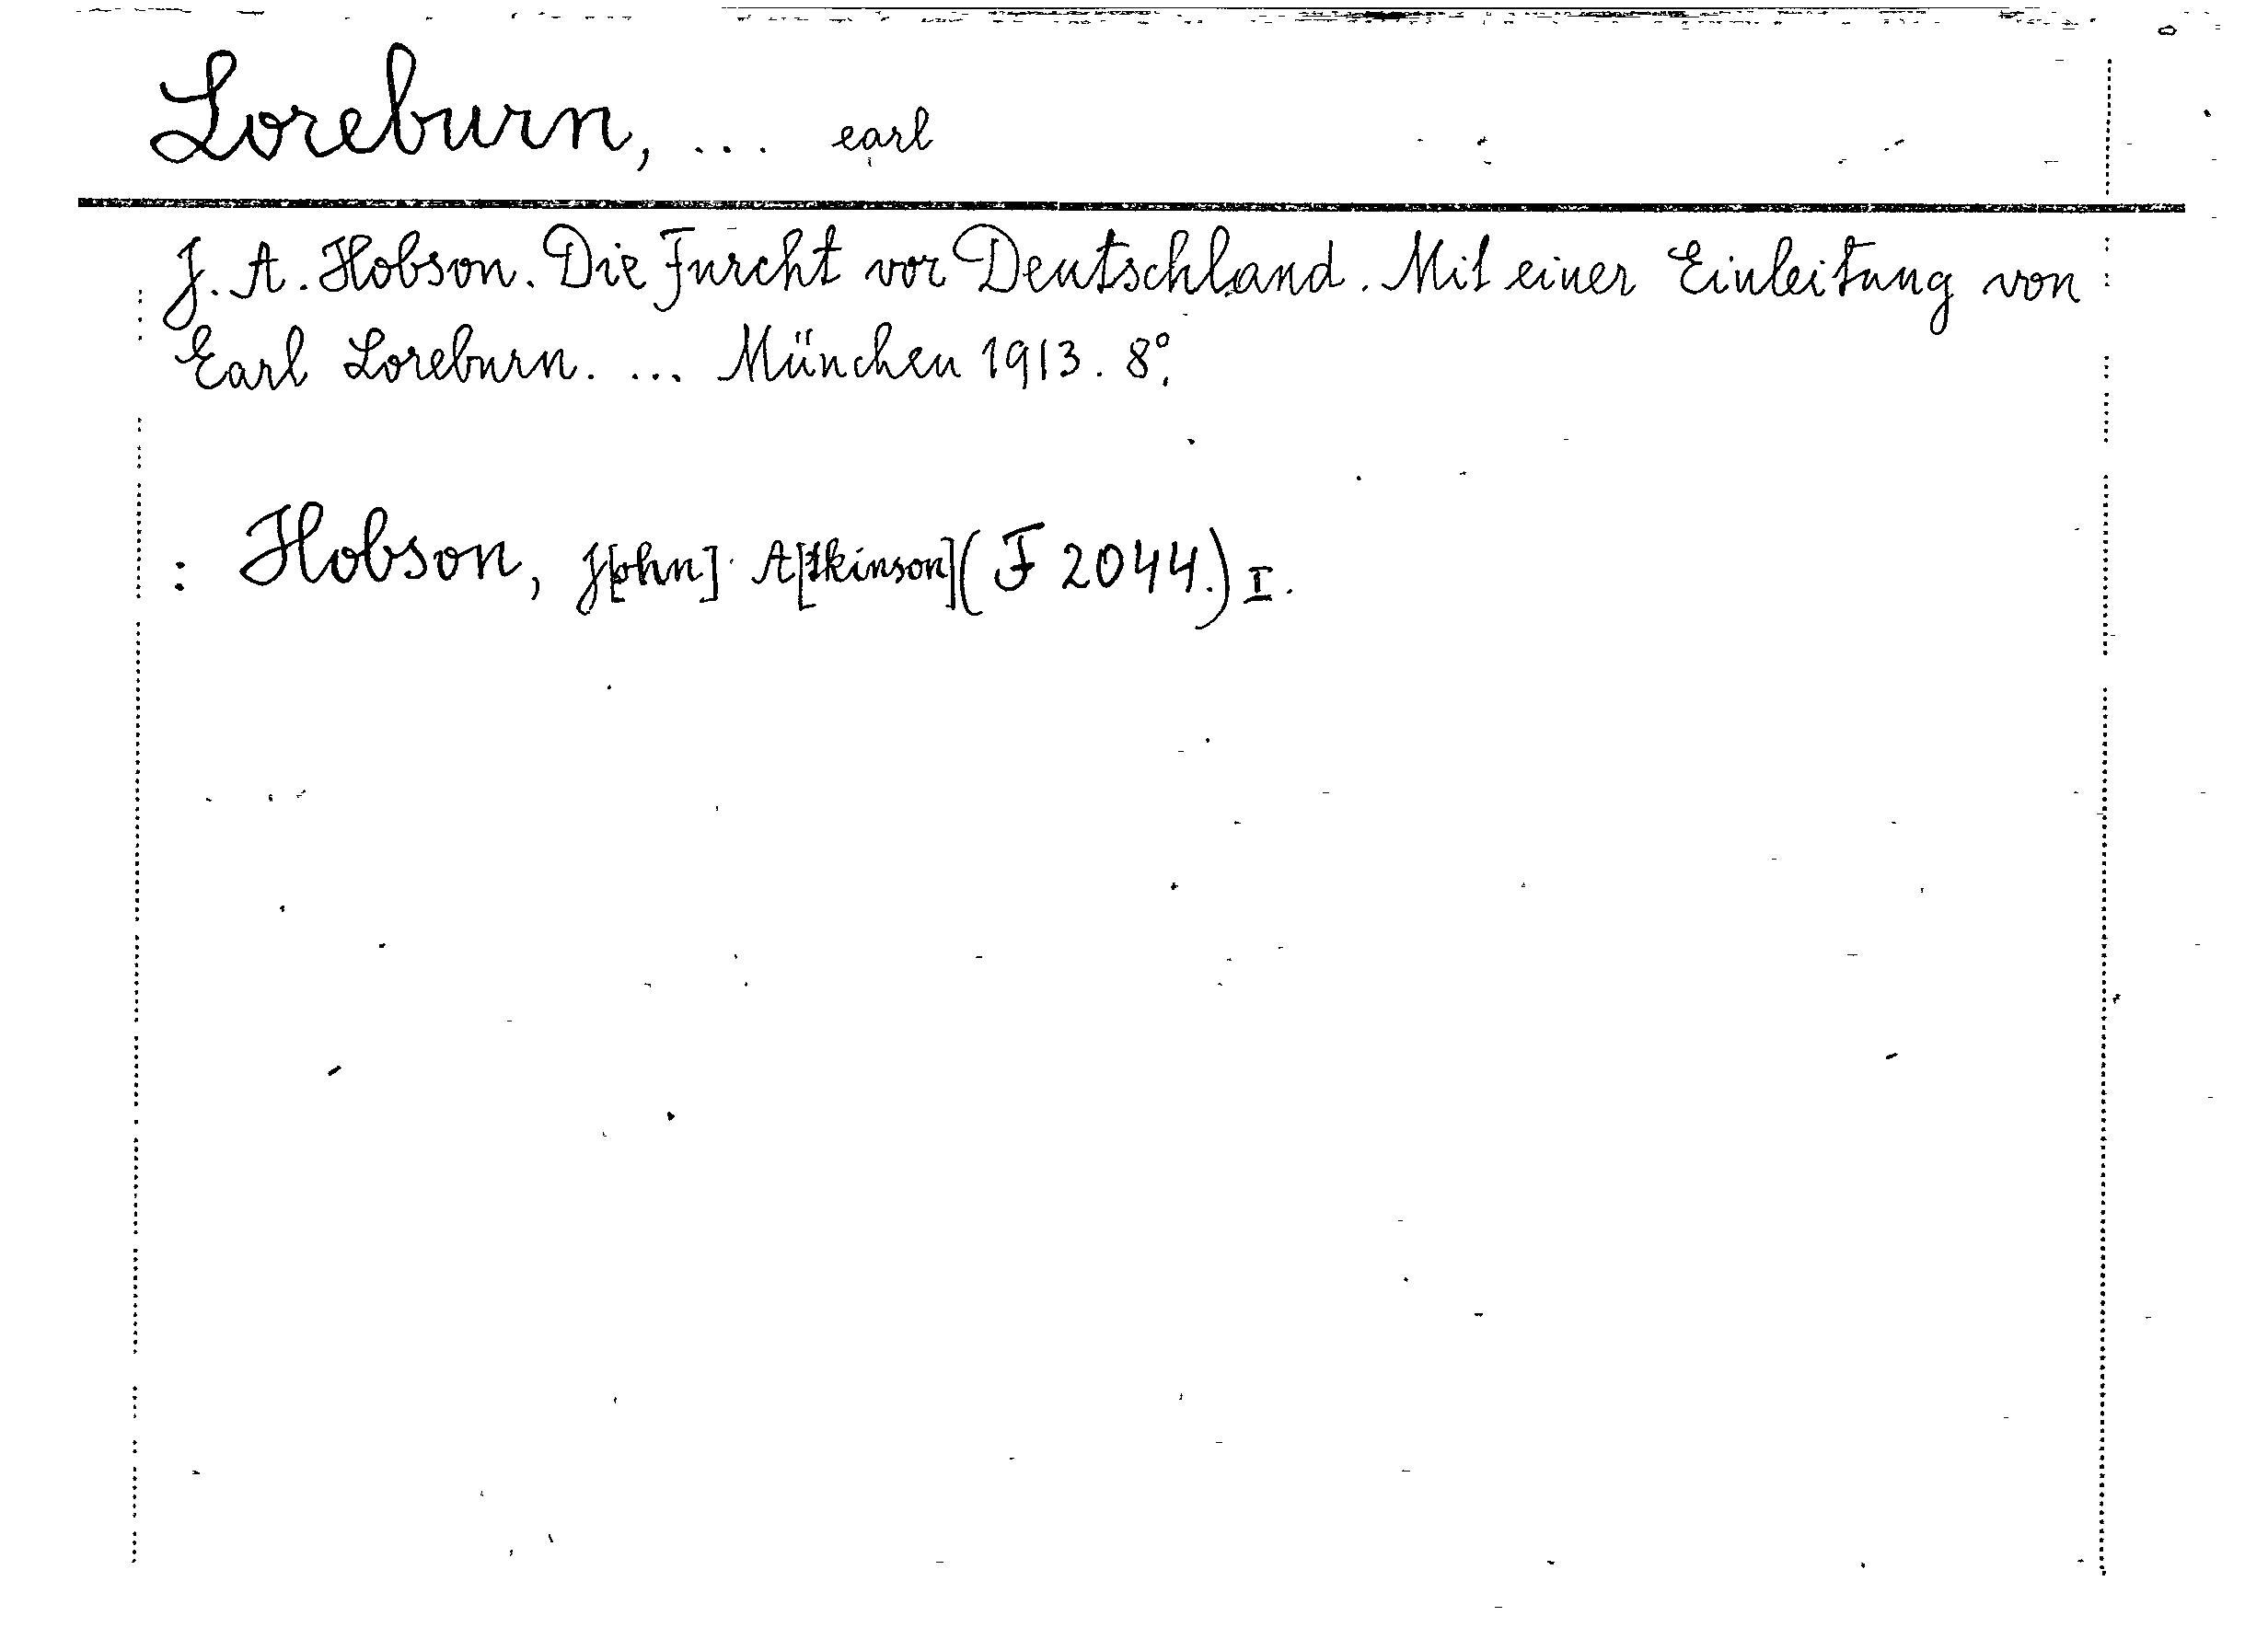 Loreburn, ... earl
J. A. Hobson. Die Furcht vor Deutschland. Mit einer Einleitung von
Earl Loreburn. ... München 1913. 8°.
: Hobson, J[ohn] A[tkinson] (F 2044.) I.